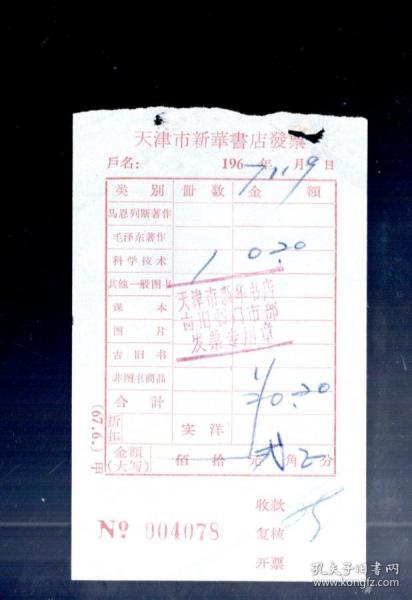 天津市新華書店發票
戶名: 1967年11月9日
类 別 冊 数 金 額
马恩列斯著作
毛泽东著作
科学技术 1 0.20
其他一般图书
课 本
图 片
古 旧 书
非图书商品
合 計 1 ¥0.20
折扣 实 洋
金額(大写) 佰 拾 元 贰角 分
天津市新华书店
古旧书门市部
发票专用章
(67.6.)甲
收款
№ 004078 复核
开票
孔夫子旧书网
kongfz.com